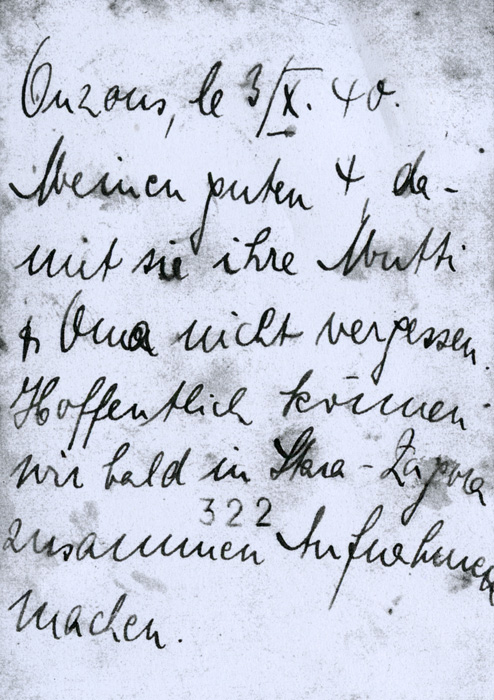 Onzons, le 3/X. 40.
Meinen guten 4, da-
mit sie ihre Mutti
& Oma nicht vergessen.
Hoffentlich können
wir bald in Stara-Zagora
322
zusammen Aufnahmen
machen.